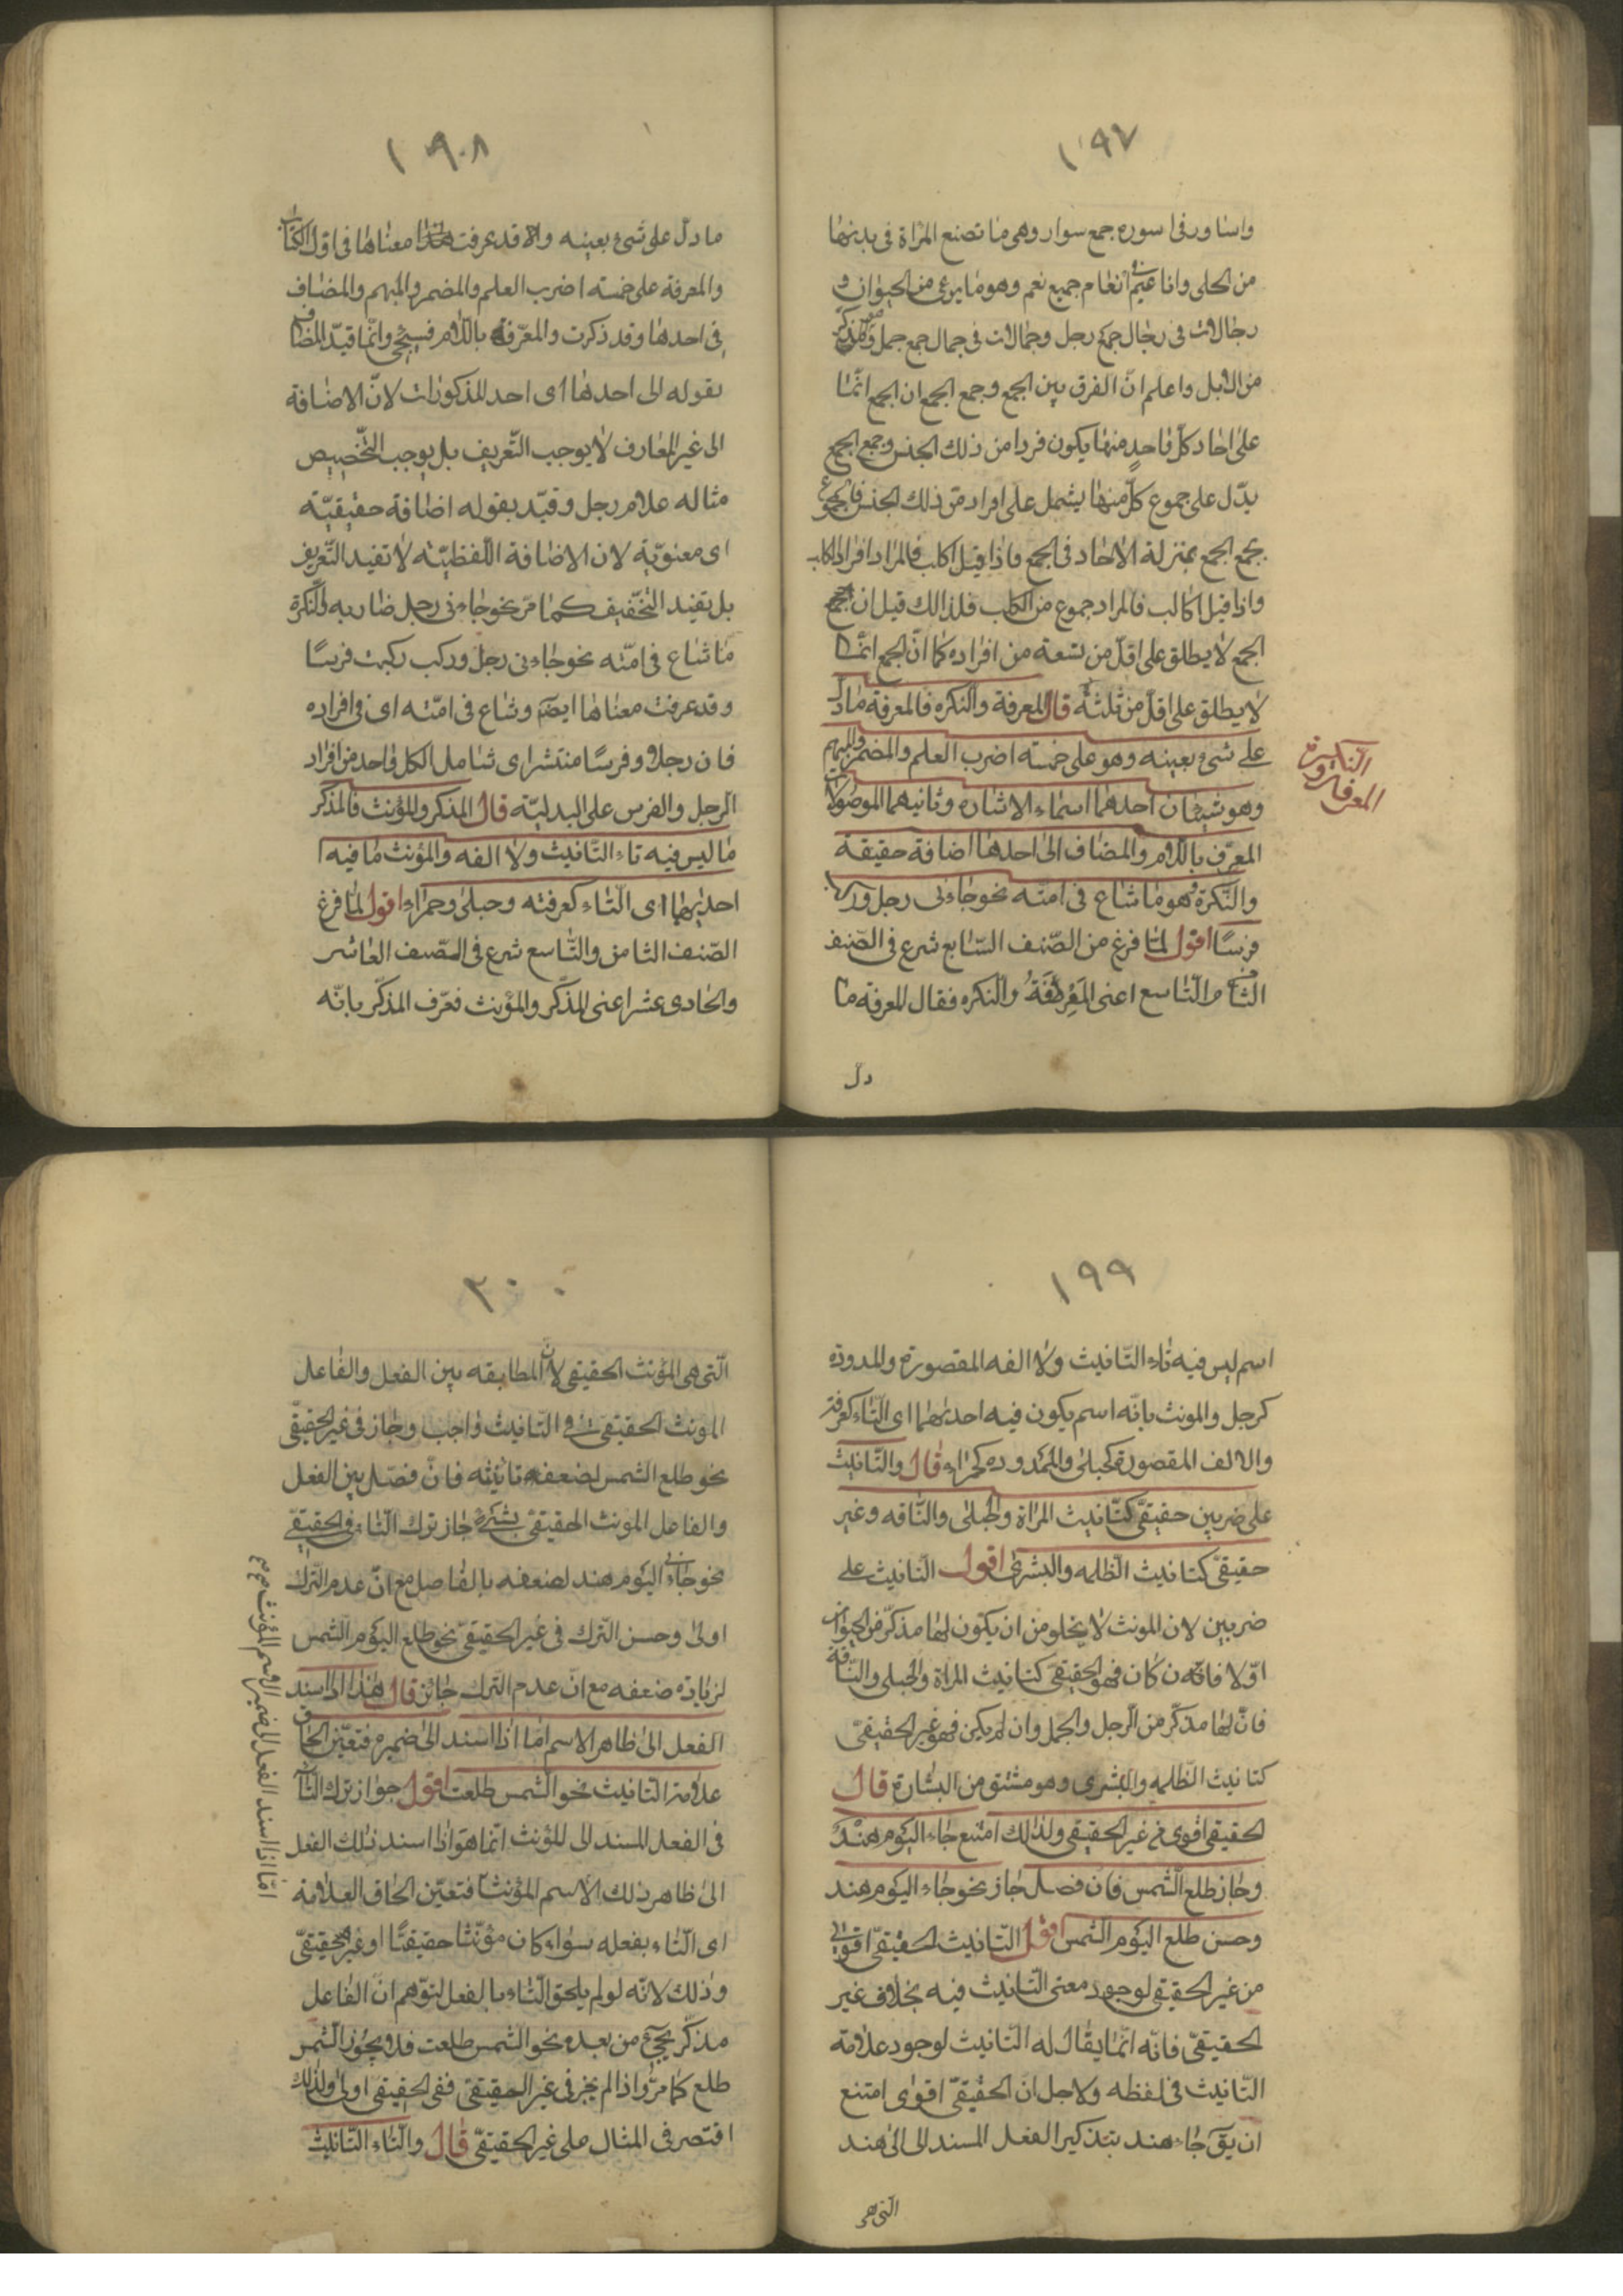 ١٩٧
واساور فی اسوره جمع سوار وهی ما تصنع المرٔاة فی یدیها
من الحلی واناعیم فی انعام جمیع نعم وهو ما یرعی من الحیوان و
رجالات فی رجال جمع رجل وجمالات فی جمال جمع جمل وهو مذکر
من الابل واعلم انّ الفرق بین الجمع وجمع الجمع ان الجمع انّما
علی احاد کلّ واحدٍ منها یکون فردا من ذلك الجنس وجمع الجمع
یدّل علی جموع کلّ منها یشمل علی افراد من ذلك الجنس فالجموع
بجمع الجمع بمنزلة الاحاد فی الجمع فاذا قیل اکلب فالمراد افراد الکلب
واذا قیل اکالب فالمراد جموع من الکلب فلذالك قیل ان جمع
الجمع لا یطلق علی اقلّ من تسعة من افراده کما انّ الجمع انّما
لا یطلق علی اقلّ من ثلثة قال المعرفة والنکره فالمعرفة ما دلّ
علی شیء بعینه وهو علی خمسته اضرب العلم والمضمر والمبهم
وهو شیئان احدهما اسماء الاشاره وثانیهما الموصولات
المعرّف باللّام والمضاف الی احدهما اضافة حقیقة
والنّکرة وهو ما شاع فی امّته نحو جاءنی رجل ورکبت
فرسًا اقول لمّا فرغ من الصّنف السّابع شرع فی الصّنف
الثامن والتّاسع اعنی المَعْرِفَةُ والنکره فقال المعرفة ما
دلّ
النّکیرة
والمعرفة
١٩٨
ما دلّ علی شیء بعینه والا قد عرفت معناها فی اوّل الکتاب
والمعرفة علی خمسته اضرب العلم والمضمر والمبهم والمضاف
فی احدها وقد ذکرت والمعرّفة باللّام فسیجیٔ وانّما قیّد المضاف
بقوله الی احدها ای احد المذکورات لانّ الاضافة
الی غیر المعارف لا یوجب التّعریف بل یوجب التّخصیص
مثاله غلام رجل وقیّد بقوله اضافة حقیقیّة
ای معنویّة لان الاضافة اللّفظیّة لا تفید التّعریف
بل تفید التخّفیف کما مرّ نحو جاءنی رجل ضاربه والنّکرة
ما شاع فی امّته نحو جاءنی رجل ورکب رکبت فرسًا
وقد عرفت معناها ایضًا وشاع فی امّته ای فی افراده
فان رجلا وفرسًا منتشر ای شامل لکل واحد من افراد
الرجل والفرس علی البدلیّة قال المذکر والمؤنث فالمذکر
ما لیس فیه تاء التّانیث ولا الفه والمؤنث ما فیه
احدیهما ای التّاء کعرفته وحبلی وحمراء اقول لمّا فرغ
الصّنف الثامن والتّاسع شرع فی الصّنف العاشر
والحادی عشر اعنی المذکّر والمؤنث فعرّف المذکّر بانّه
١٩٩
اسم لیس فیه تاء التّانیث ولا الفه المقصورة والممدوده
کرجل والمونث بانّه اسم یکون فیه احدیهما ای التّاء کعرفته
والالف المقصورة کحبلی والممدوده کحمراء قال والتّانیث
علی ضربین حقیقیّ کتّانیث المرٔاة والحبلی والنّاقه وغیر
حقیقیّ کتانیث الظّلمه والبشری اقول التانیث علی
ضربین لان المونث لا یخلو من ان یکون لها مذکّر من الحیوان
اوّلا فان کان فهو الحقیقیّ کتانیث المرٔاة والحبلی والنّاقة
فانّ لها مذکّر من الرّجل والجمل وان لم یکن فهو غیر الحقیقیّ
کتانیث الظّلمه والبشری وهو مشتق من البشارة قال
الحقیقی اقوی من غیر الحقیقی ولذلك امتنع جاء الیوم هند
وجاز طلع الشّمس فان فصل جاز نحو جاء الیوم هند
وحسن طلع الیوم الشمس اقول التّانیث الحقیقیّ اقوی
من غیر الحقیقی لوجود معنی التّانیث فیه بخلاف غیر
الحقیقیّ فانّه انّما یقال له التّانیث لوجود علامة
التّانیث فی لفظه ولاجل انّ الحقیقیّ اقوی امتنع
ان یقَ جاء هند بتذکیر الفعل المسند الی الی هند
التی هی
٢٠٠
الّتی هی المؤنث الحقیقی لانّ المطابقه بین الفعل والفاعل
المونث الحقیقیّ فی التّانیث واجب وجاز فی غیر الحقیقیّ
نحو طلع الشمس لضعف تانیثه فانّ فصّل بین الفعل
والفاعل المونث الحقیقیّ بشیء جاز ترك التّاء فی الحقیقی
نحو جاءنی الیوم هند لضعفه بالفاصل مع انّ عدم التّرك
اولیٰ وحسن التّرك فی غیر الحقیقیّ نحو طلع الیوم الشمس
لزیاده ضعفه مع انّ عدم الترك جائز قال هذا اذا اسند
الفعل الی ظاهر الاسم امّا اذا اسند الی ضمیره فتعیّن الحاق
علامة التّانیث نحو الشمس طلعت اقول جواز ترك التّاء
فی الفعل المسند الی المؤنث انّما هو اذا اسند ذلك الفعل
الی ظاهر ذلك الاسم المؤنث فتعیّن الحاق العلامة
ای التّاء بفعله سواء کان مؤنّثا حقیقیًّا او غیر الحقیقیّ
وذلك لانّه لو لم یلحق التّاء بالفعل لتوّهم انّ الفاعل
مذکّر یجیٔ من بعده نحو الشمس طلعت فلا یجوز الشمس
طلع کما مرّ واذا لم یجز فی غیر الحقیقیّ ففی الحقیقی اولی ولذلك
اقتصر فی المثال علی غیر الحقیقیّ قال والتّاء التّانیث
امّا اذا اسند الفعل الی ضمیر الاسم المؤنث